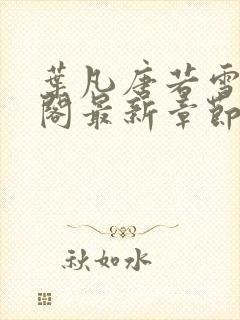 葉凡唐若雪
閣最新章節
秋如水